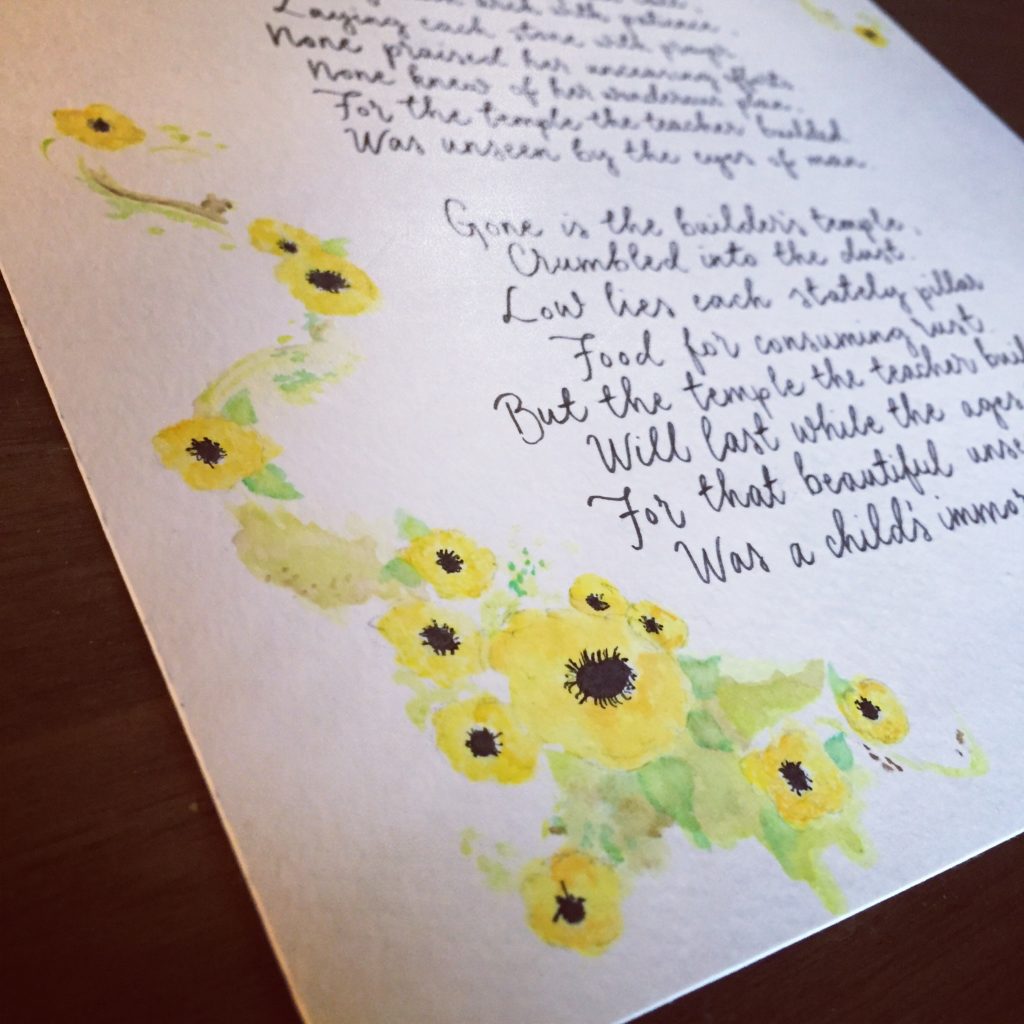 arch with patience,
Laying each stone with
None praised her unceasing efforts
None knew of her wonderous plan,
For the temple the teacher builded
Was unseen by the eyes of man.
Gone is the builder's temple,
Crumbled into the dust.
Low lies each stately pillar
Food for consuming rust.
But the temple the teacher buil
Will last while the ages
For that beautiful unse
Was a child's immor